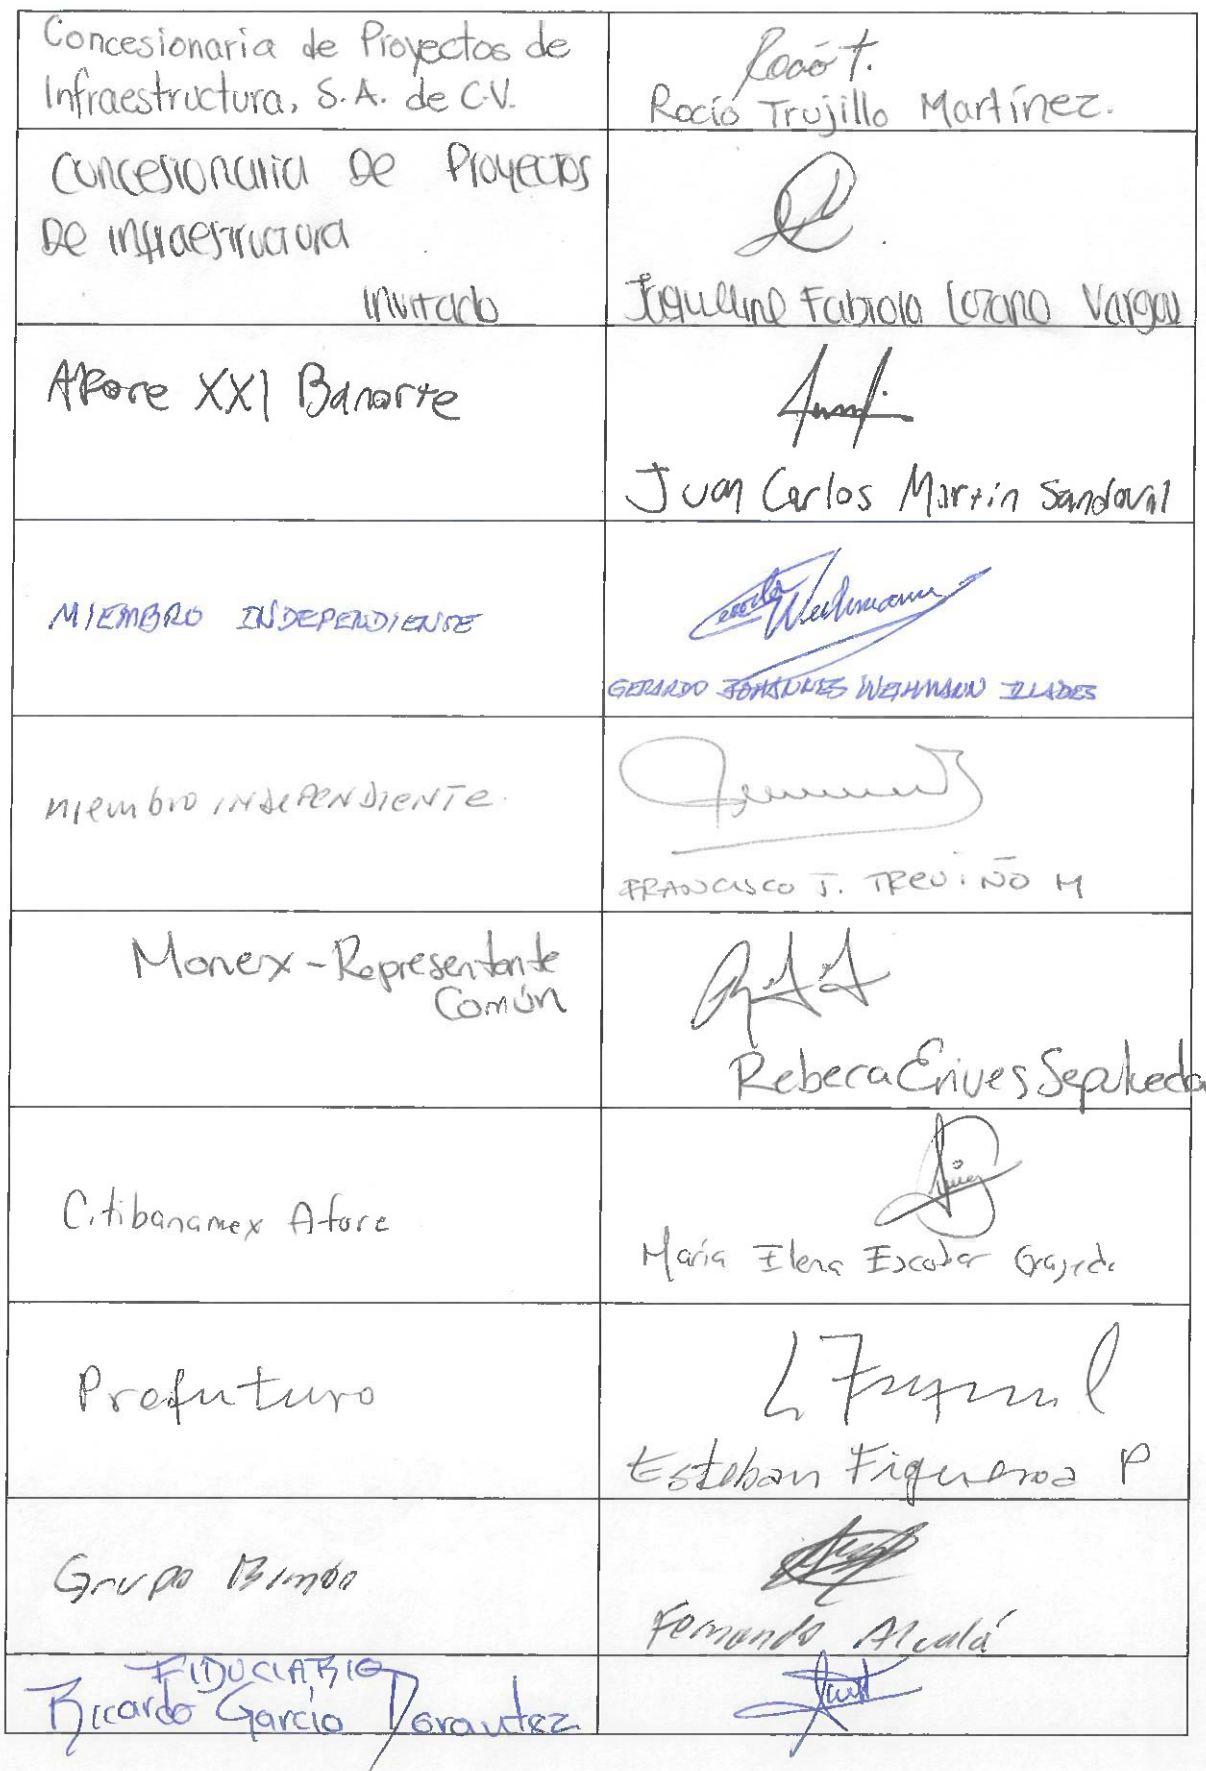 Concesionaria de Proyectos de
Infraestructura, S.A. de C.V.
Rocío T.
Rocío Trujillo Martínez.
Concesionaria De Proyectos
De infraestructura
invitado
Jaqueline Fabiola Lozano Vargas
Afore XXI Banorte
Juan Carlos Martin Sandoval
MIEMBRO INDEPENDIENTE
GERARDO JOHANNES WEIHMANN ILLADES
miembro INDEPENDIENTE.
FRANCISCO J. TREVIÑO M
Monex - Representante
Común
Rebeca Erives Sepulveda
Citibanamex Afore
María Elena Escobar Grajeda
Profuturo
Esteban Figueroa P
Grupo Bimbo
Fernando Alcalá
FIDUCIARIO
Ricardo García Dorantes